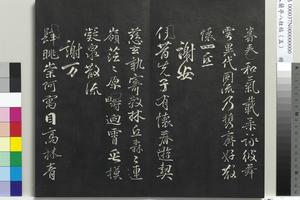 暮春和氣載柔詠彼舞
雩異代同流乃攜齊好散
懷一丘
謝安
伊昔先子有懷春遊契
茲言執寄傲林丘森森連
嶺茫茫原疇迥霄垂
凝泉散流
謝万
肆眺崇阿寓目高林青